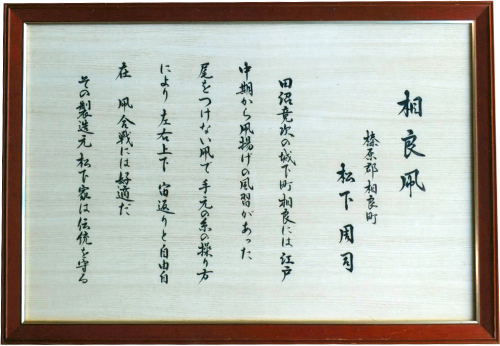 相良凧
榛原郡相良町
松下周司
田沼意次の城下町相良には江戸
中期から凧揚げの風習があった
尾をつけない凧で手元の糸の操り方
により左右上下宙返りと自由自
在 凧合戦には好適だ
その製造元松下家は伝統を守る